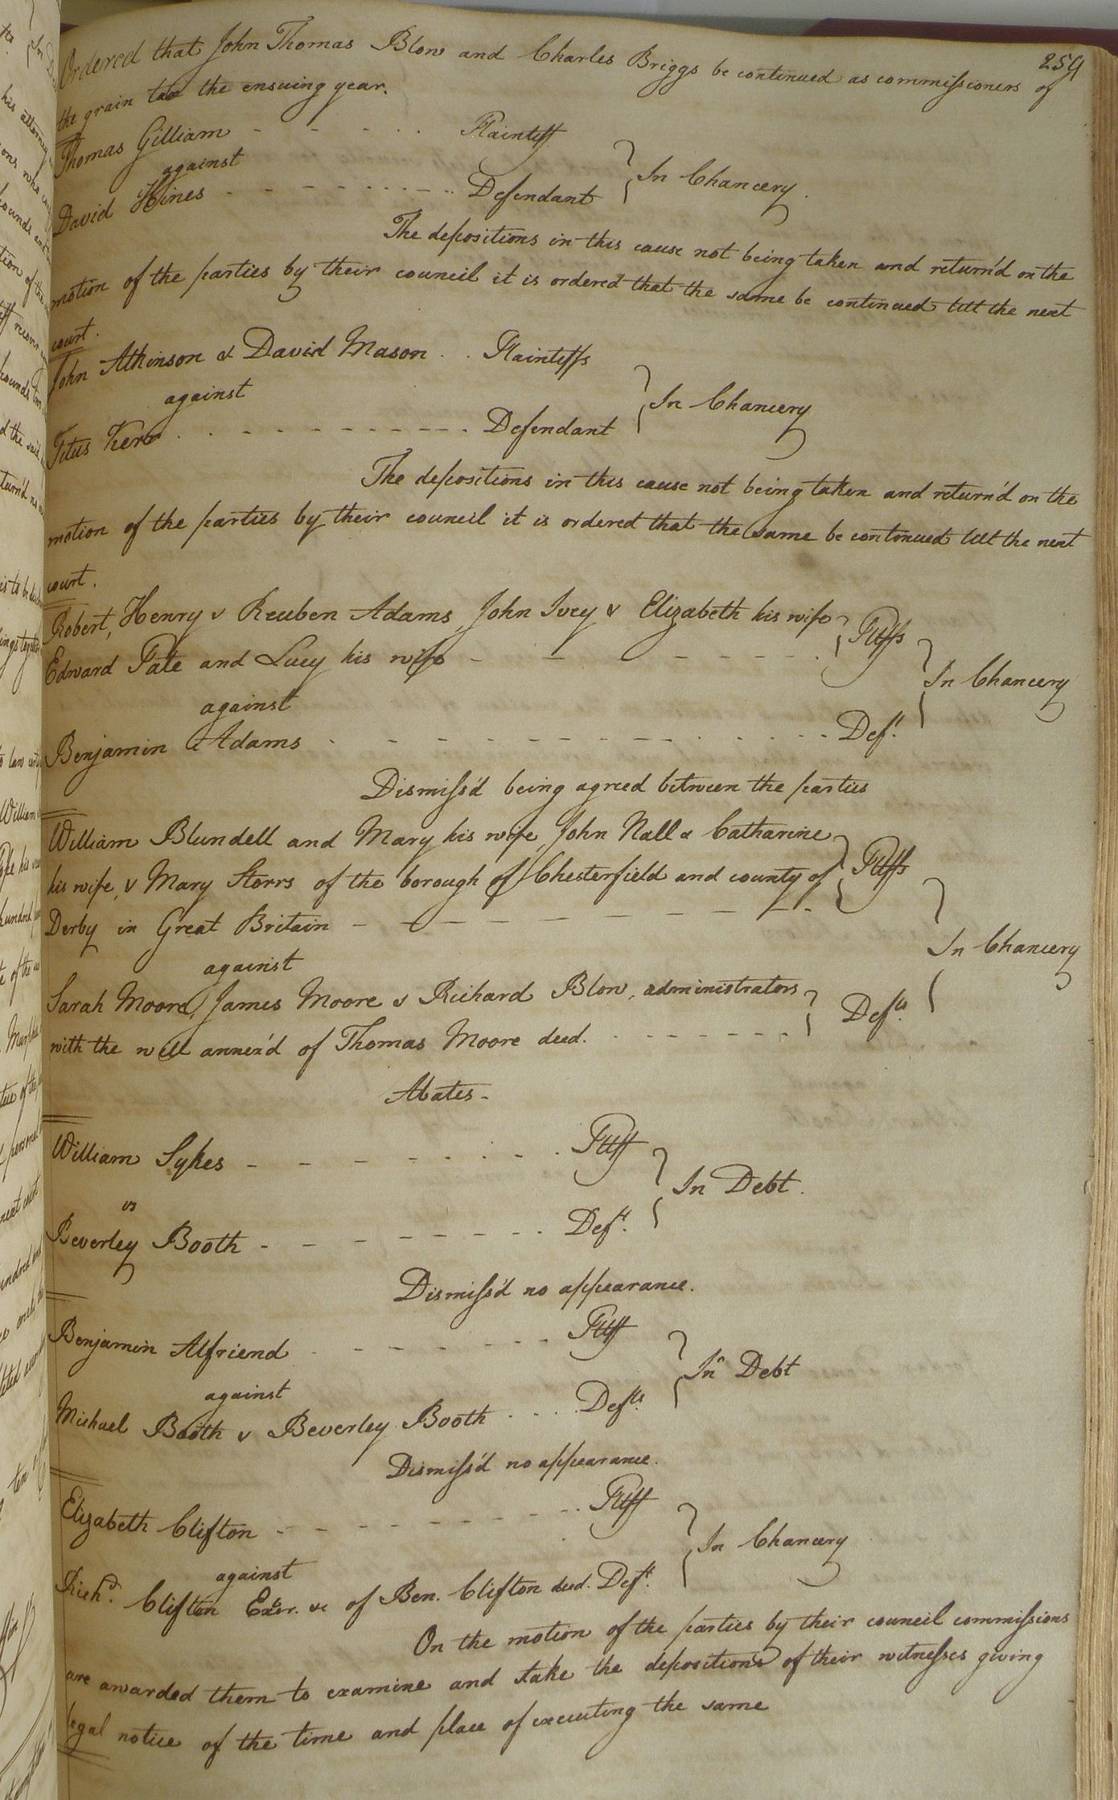 259
Ordered that John Thomas Blow and Charles Briggs be continued as commissioners of
the grain tax the ensuing year.
Thomas Gilliam - - - - Plaintiff
against } In Chancery.
David Hines - - - - - - - Defendant
The depositions in this cause not being taken and return'd on the
motion of the parties by their council it is ordered that the same be continued till the next
court.
John Atkinson & David Mason . . Plaintiffs
against } In Chancery
Titus Kerr - - - - - - - - Defendant
The depositions in this cause not being taken and return'd on the
motion of the parties by their council it is ordered that the same be continued till the next
court.
Robert, Henry & Reuben Adams, John Ivey & Elizabeth his wife } Pltffs
Edward Pate and Lucy his wife - - - - - - -
against } In Chancery
Benjamin Adams - - - - - - - - - - - Deft.
Dismiss'd being agreed between the parties
William Blundell and Mary his wife, John Nall & Catharine } Pltffs
his wife, & Mary Storrs of the borough of Chesterfield and county of
Derby in Great Britain - - - - - - - -
against } In Chancery
Sarah Moore, James Moore & Richard Blow, administrators } Defts.
with the will annex'd of Thomas Moore decd. - - - - - -
Abates -
William Sykes - - - - - - - - Pltff
vs } In Debt.
Beverley Booth - - - - - - - - Deft.
Dismiss'd no appearance.
Benjamin Alfriend - - - - - - Pltff
against } In Debt
Michael Booth & Beverley Booth . . . . Defts.
Dismiss'd no appearance.
Elizabeth Clifton - - - - - - - - Pltff
against } In Chancery
Richd. Clifton Exor. &c of Ben. Clifton decd. Deft.
On the motion of the parties by their council commissions
are awarded them to examine and take the depositions of their witnesses giving
legal notice of the time and place of executing the same